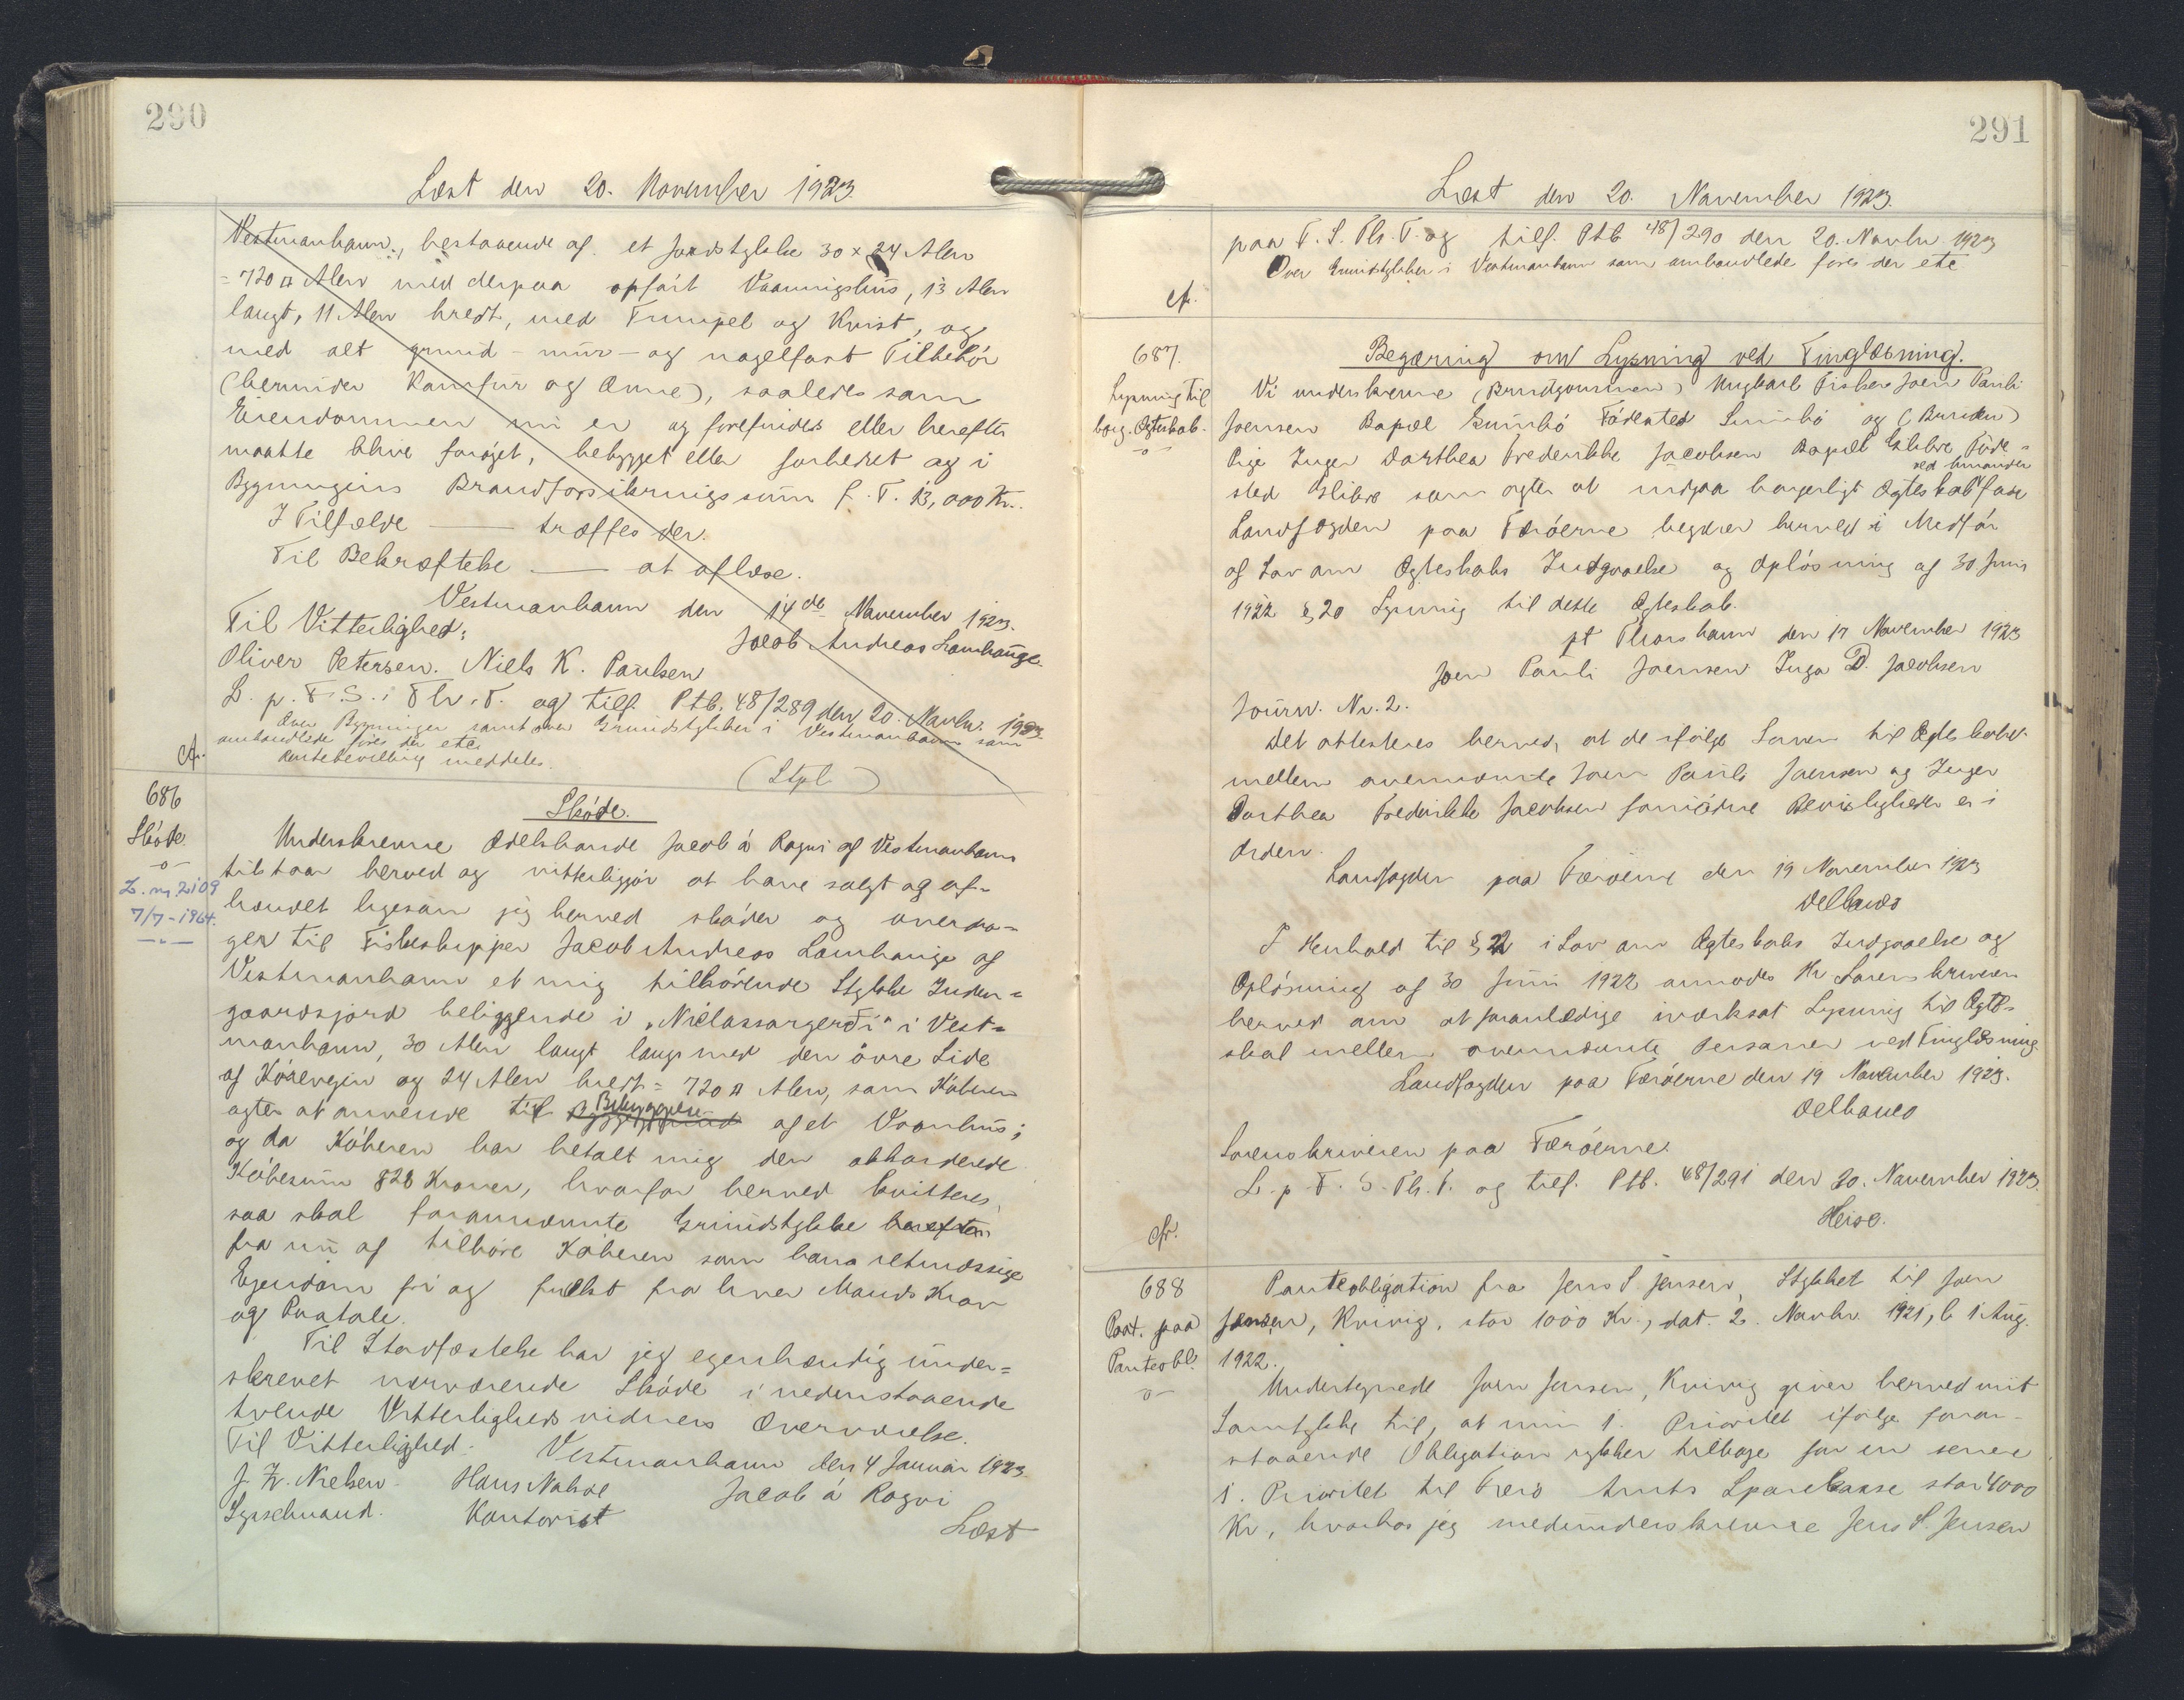 290
Læst den 20. November 1923.
Vestmanhavn, bestaaende af et Jordstykke 30 x 24 Alen
= 720 □ Alen med derpaa opført Vaaningshus, 13 Alen
langt, 11 Alen bredt, med Trempel og Kvist, og
med alt grund- mur- og nagelfast Tilbehør
(herunder Komfur og Ovne), saaledes som
Eiendommen nu er og forefindes eller herefter
maatte blive forøget, bebygget eller forbedret og i
Bygningens Brandforsikringssum f. T. 13,000 Kr.
I Tilfælde —— træffes der.
Til Bekræftelse —— at aflæse.
Vestmanhavn den 14de November 1923.
Til Vitterlighed:
Jacob Andreas Lamhauge.
Oliver Petersen. Niels K. Paulsen
L. p. F. S. i Th. T. og tilf. Ptb. 48/289 den 20. Novbr. 1923.
Over Bygninger samt over Grundstykker i Vestmanhavn som
omhandlede føres der ete
Rentebevilling meddeles.
cfr.
(Stpl )
686
Skøde.
Skøde
-o-
L. nr. 2109
7/7-1964.
Underskrevne Odelsbonde Jacob á Ragni af Vestmanhavn
tilstaar herved og vitterliggjør at have solgt og af-
hændet ligesom jeg herved skøder og overdra-
ger til Fiskeskipper Jacob Andreas Lamhauge af
Vestmanhavn et mig tilhørende Stykke Inden-
gaardsjord beliggende i „Niclassargerði" i Vest-
manhavn, 30 Alen langt langs med den øvre Side
af Kórvegin og 24 Alen bredt = 720 □ Alen, som Køberen
agter at anvende til Bebyggelse af et Vaanhus;
og da Køberen har betalt mig den akkorderede
Købesum 820 Kroner, hvorfor herved kvitteres,
saa skal forannævnte Grundstykke herefter
fra nu af tilhøre Køberen som hans retmæssige
Ejendom fri og frelst fra hver Mands Krav
og Paatale.
Til Stadfæstelse har jeg egenhændig under-
skrevet nærværende Skøde i nedenstaaende
tvende Vitterlighedsvidners Overværelse.
Til Vitterlighed. Vestmanhavn den 4 Januar 1923
J. W. Nielsen Hans Nolsøe Jacob á Ragni
Sysselmand. Kontorist
Læst
291
Læst den 20. November 1923.
paa F. S. Th. T. og tilf. Ptb 48/290 den 20. Novbr 1923
Over Grundstykker i Vestmanhavn som omhandlede føres der ete
cfr.
687.
Begæring om Lysning ved Tinglæsning.
Lysning til
borg. Ægteskab.
-o-
Vi underskrevne (Brudgommen) Ungkarl Fisker Joen Pauli
Joensen Bopæl Sumbø Fødested Sumbø og (Bruden)
Pige Inger Dorthea Frederikke Jacobsen Bopæl Glibre Føde-
sted Glibre som agter at indgaa borgerligt Ægteskab ved hinanden for
Landfogden paa Færøerne begærer herved i Medfør
af Lov om Ægteskabs Indgaaelse og Opløsning af 30 Juni
1922 § 20 Lysning til dette Ægteskab.
pt Thorshavn den 17 November 1923
Joen Pauli Joensen Inga D. Jacobsen
Journ. Nr. 2.
Det attesteres herved, at de ifølge Loven til Ægteskabet
mellem ovennævnte Joen Pauli Joensen og Inger
Dorthea Frederikke Jacobsen fornødne Bevisligheder er i
Orden.
Landfogden paa Færøerne den 19 November 1923
I Henhold til § 22 i Lov om Ægteskabs Indgaaelse og
Opløsning af 30 Juni 1922 anmodes Hr Sorenskriveren
herved om at foranledige iværksat Lysning til Ægte-
skab mellem ovennævnte Personer ved Tinglæsning.
Landfogden paa Færøerne den 19 November 1923.
Sorenskriveren paa Færøerne.
L. p. F. S. Th. T. og tilf. Ptb. 48/291 den 20. November 1923.
Heise.
cfr.
688
Paat. paa
Panteobl.
-o-
Panteobligation fra Jens S. Jensen, Stykket til Joen
Jensen, Kvivig, stor 1000 Kr., dat. 2. Novbr. 1921, l. 1 Aug.
1922.
Undertegnede Joen Jensen, Kvivig giver herved mit
Samtykke til, at min 1. Prioritet ifølge foran-
staaende Obligation rykker tilbage for en senere
1. Prioritet til Færø Amts Sparekasse stor 4000
Kr, hvorhos jeg medunderskrevne Jens S. Jensen